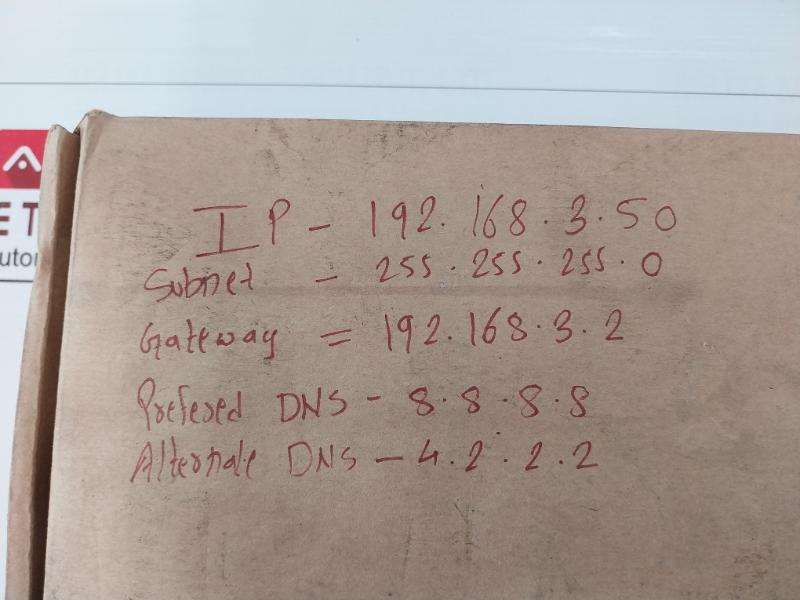 ET
utom
IP - 192.168.3.50
Subnet - 255.255.255.0
Gateway = 192.168.3.2
Prefered DNS - 8.8.8.8
Alternate DNS - 4.2.2.2